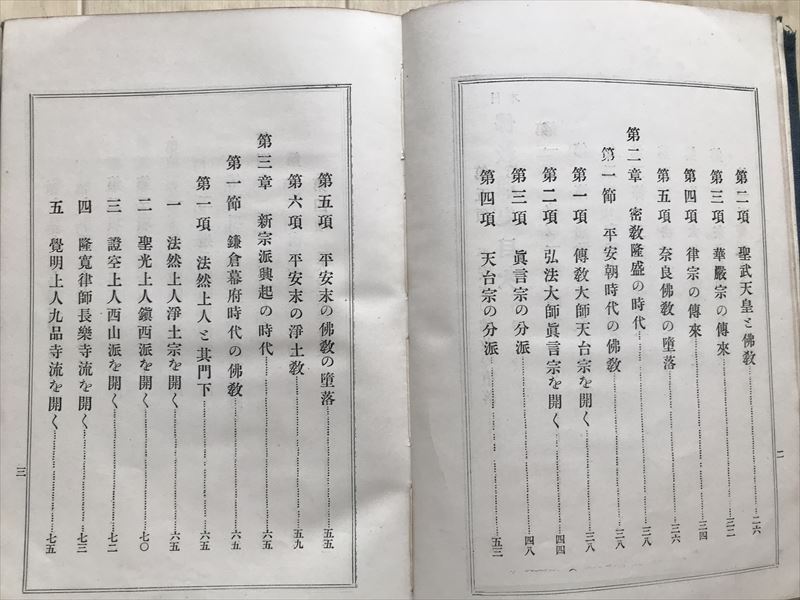 第二項 聖武天皇と佛教……二六
第三項 華嚴宗の傳來……三二
第四項 律宗の傳來……三四
第五項 奈良佛教の墮落……三六
第二章 密教隆盛の時代……三八
第一節 平安朝時代の佛教……三八
第一項 傳教大師天台宗を開く……三八
第二項 弘法大師眞言宗を開く……四四
第三項 眞言宗の分派……四八
第四項 天台宗の分派……五三
二
第五項 平安末の佛教の墮落……五五
第六項 平安末の淨土教……五九
第三章 新宗派興起の時代……六五
第一節 鎌倉幕府時代の佛教……六五
第一項 法然上人と其門下……六五
一 法然上人淨土宗を開く……六五
二 聖光上人鎭西派を開く……七〇
三 證空上人西山派を開く……七二
四 隆寬律師長樂寺流を開く……七三
五 覺明上人九品寺流を開く……七五
三